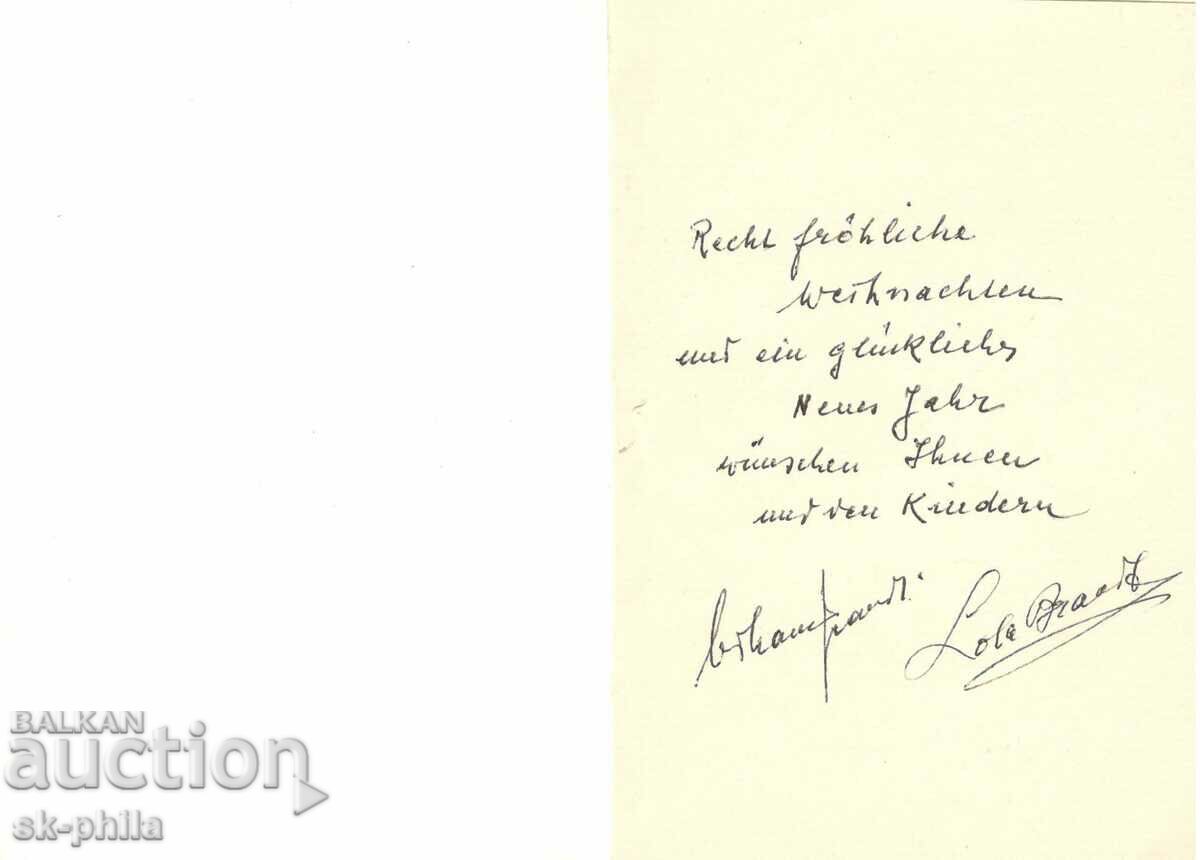 Recht fröhliche
Weihnachten
und ein glückliches
Neues Jahr
wünschen Ihnen
und den Kindern
Lola Brandt
BALKAN
auction
sk-phila